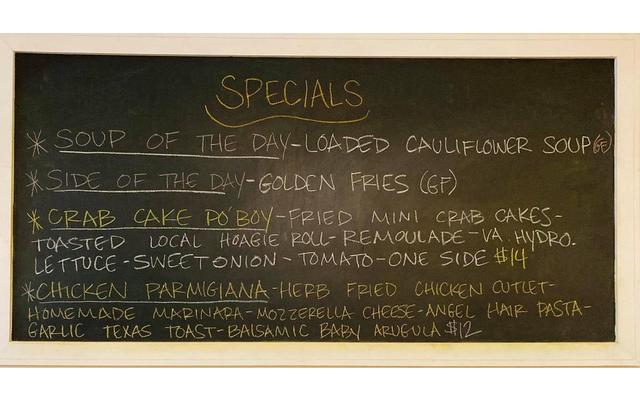 SPECIALS
* SOUP OF THE DAY-LOADED CAULIFLOWER SOUP (GF)
* SIDE OF THE DAY-GOLDEN FRIES (GF)
* CRAB CAKE PO'BOY-FRIED MINI CRAB CAKES-
TOASTED LOCAL HOAGIE ROLL-REMOULADE-VA. HYDRO.
LETTUCE-SWEET ONION-TOMATO-ONE SIDE $14
* CHICKEN PARMIGIANA-HERB FRIED CHICKEN CUTLET-
HOMEMADE MARINARA-MOZZERELLA CHEESE-ANGEL HAIR PASTA-
GARLIC TEXAS TOAST-BALSAMIC BABY ARUGULA $12